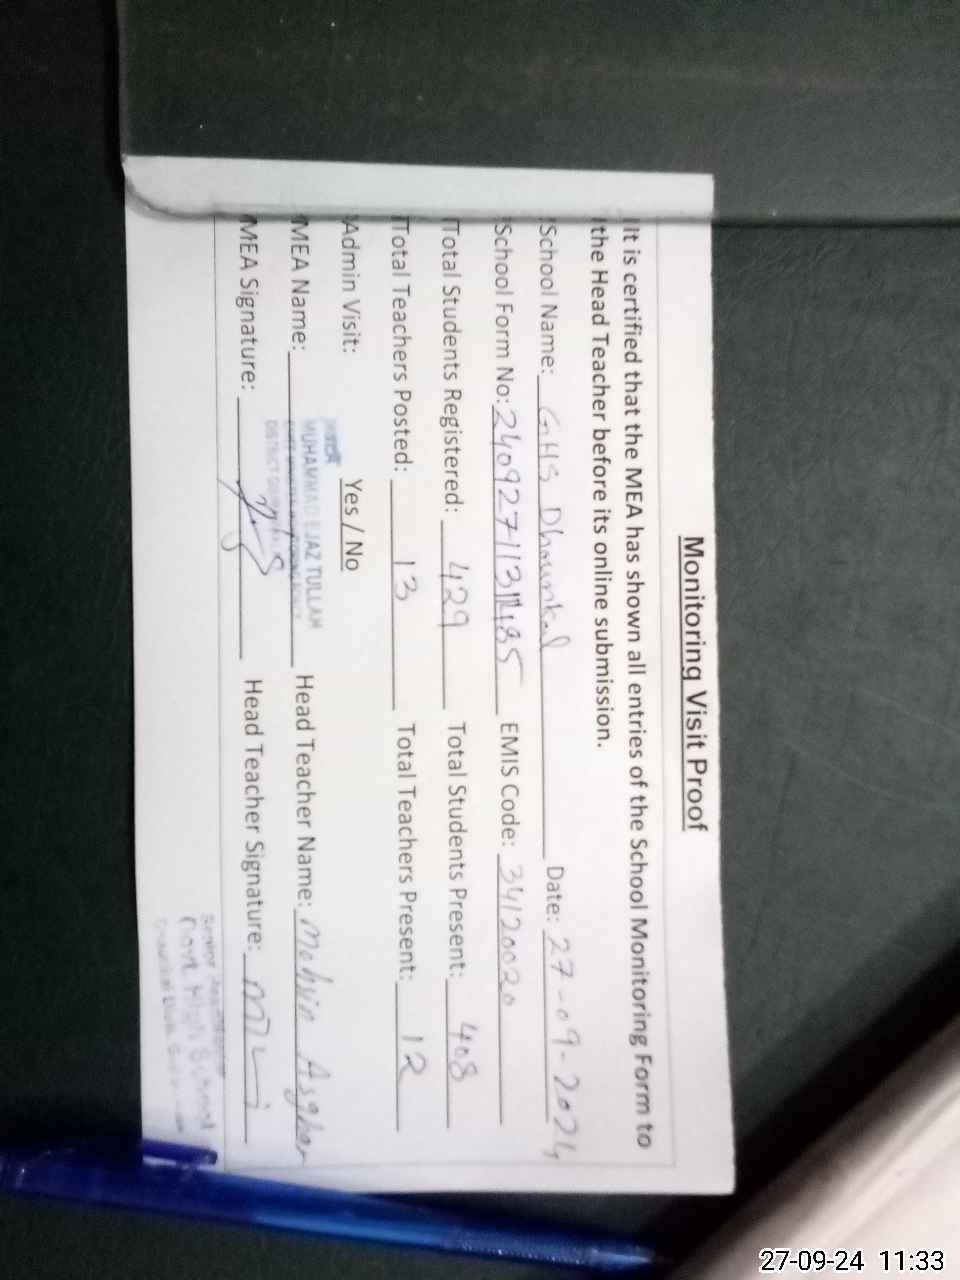 Monitoring Visit Proof
It is certified that the MEA has shown all entries of the School Monitoring Form to
the Head Teacher before its online submission.
School Name: GHS Dhounkal Date: 27-09-2024
School Form No: EMIS Code: 34120020
Total Students Registered: 429 Total Students Present: 408
Total Teachers Posted: 13 Total Teachers Present: 12
Admin Visit: Yes / No
MUHAMMAD EJAZ TULLAH
MEA Name: Head Teacher Name: Mohsin Asghar
MEA Signature: Head Teacher Signature:
Senior
Govt. High School
27-09-24 11:33